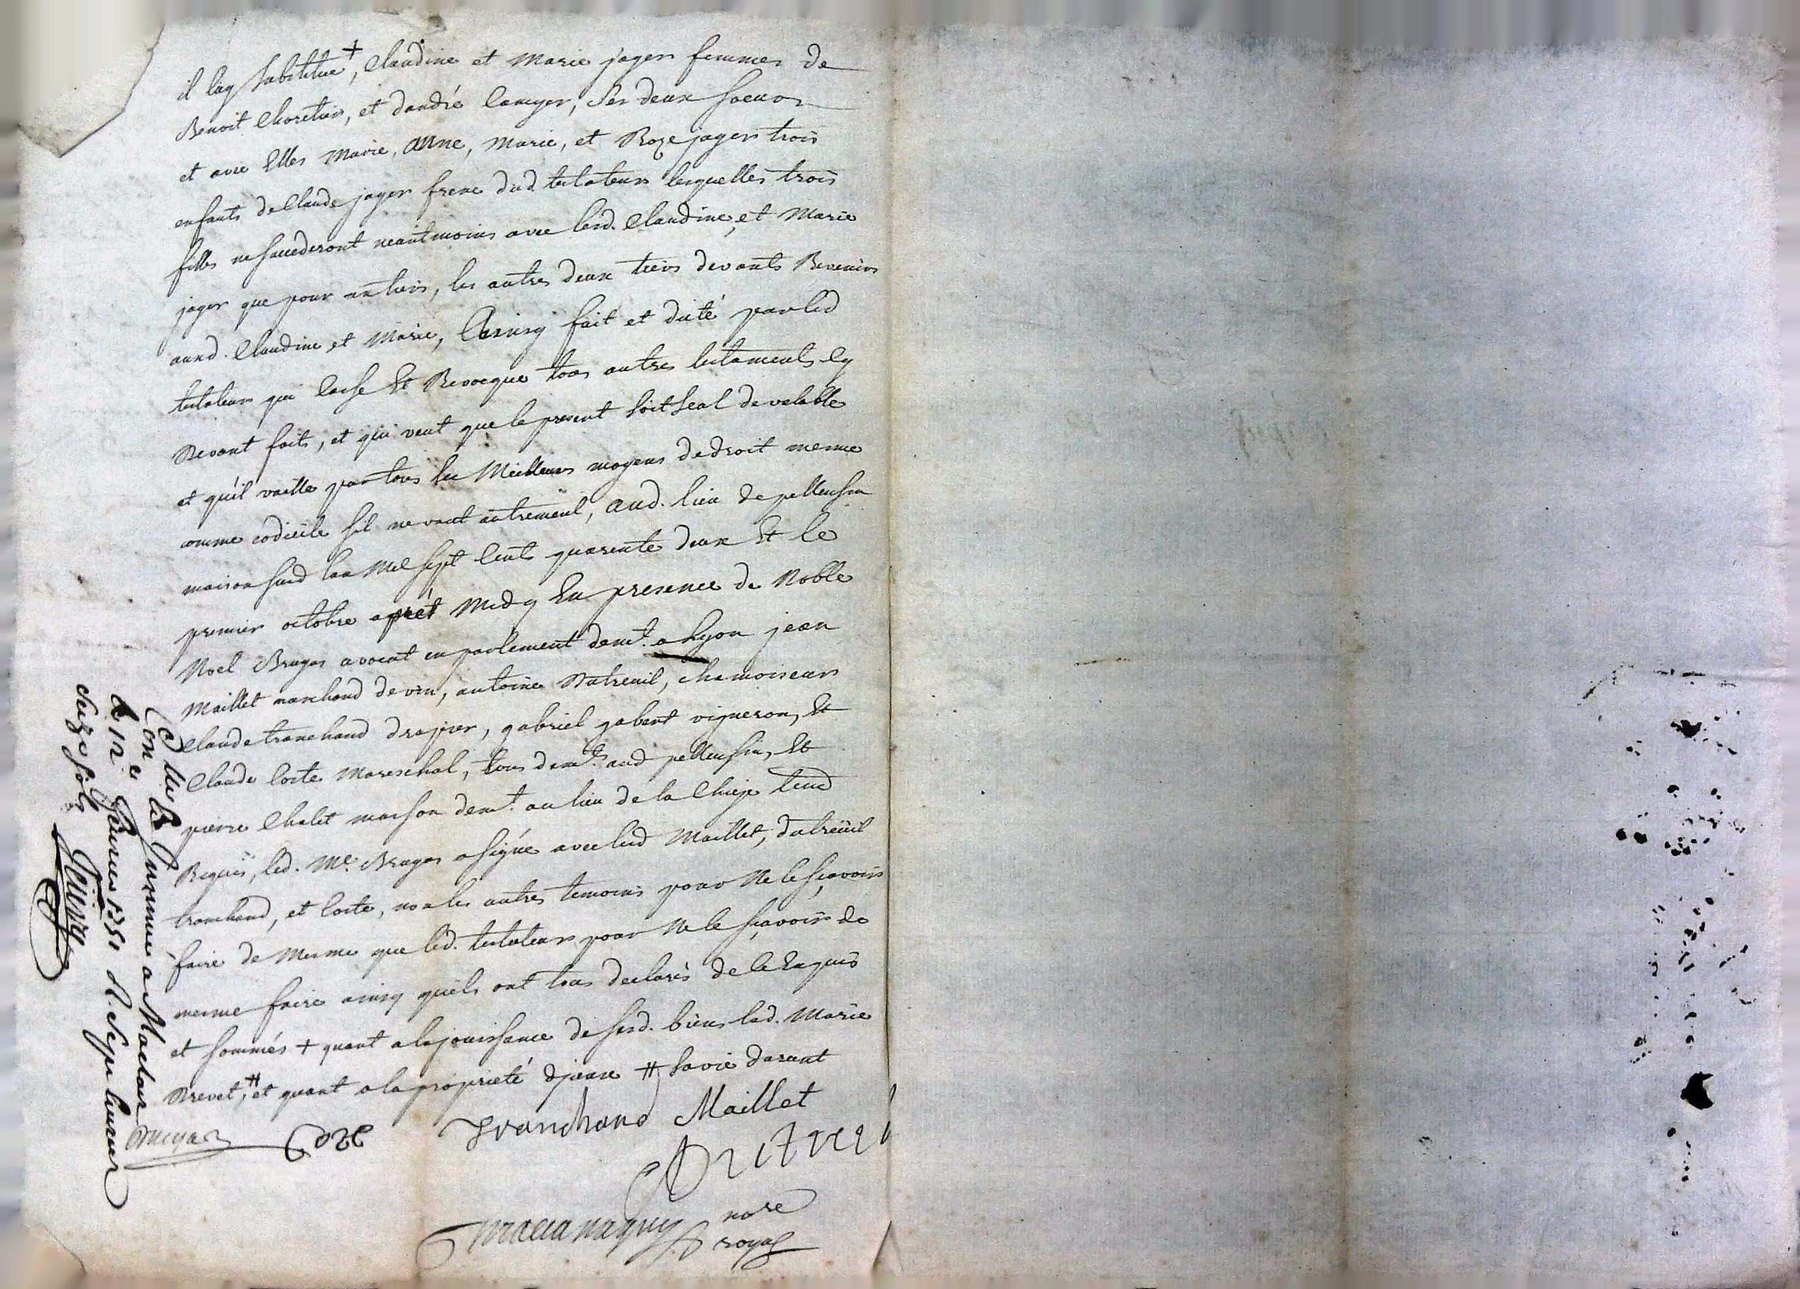 il luy substitue +, Claudine et Marie jager femmes de
Benoit Choretier, et dandré , ses deux soeurs
et avec Elles Marie, Anne, Marie, et Roze jager trois
enfants de Claude jager frere dud. testateur lesquelles trois
filles ne succederont neantmoins avec lesd. Claudine, et Marie
jager que pour un tiers, les autres deux tiers devants Revenir
auxd. Claudine et Marie, fait et dicté par led
testateur qui casse Et Revocque tous autres testaments cy
Devant faits, et qui veut que le present soit seal de valable
et qu'il vaille par tous les Meilleurs moyens de droit mesme
comme codicile sil ne vaut autrement, aud. lieu de pellussin
maison sud lan Mil sept Cents quarente deux Et le
premier octobre apret Midy En presence de Noble
Noel Bruyas avocat en parlement demt. a Lyon jean
Maillet marchand de vin, antoine Dutreuil, chamoiseur
Claude tranchand drapier, gabriel gabert vigneron, Et
Claude Coste Mareschal, tous demts. aud pellussin, Et
pierre Chalet masson demt. au lieu de la Chieze
Requis, led. Me. Bruyas a signé avec led Maillet, dutreüil
tranchand, et Coste, non les autres temoins pour Ne le sçavoir
faire de Mesme que led. testateur pour Ne le sçavoir de
mesme faire ainsy quils ont tous declarés de ce Enquis
et sommés + quant a la jouissance de sesd. biens lad. Marie
Drevet, # et quant a la proprieté # sa vie durant
Bruyas Coste Tranchand Maillet
Dutreul
nore
royal
Conle. a Maclas
le 12e. 1751 R. Sept livres
dix sols